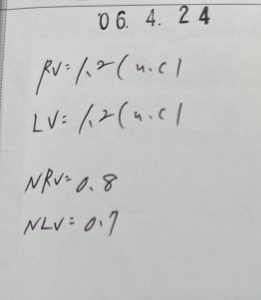 '06. 4. 24
RV=1.2(n.c)
LV=1.2(n.c)
NRV=0.8
NLV=0.7